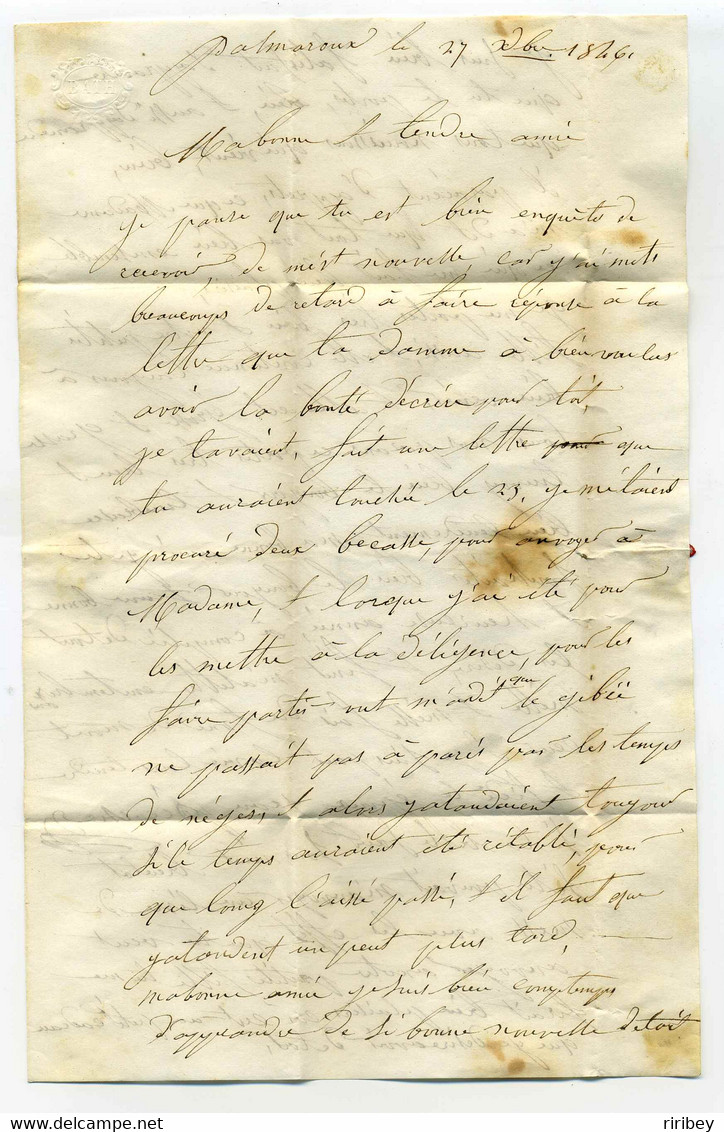 palmaroux le 27 Xbre 1846.
Mabonne & tendre amie
je panse que tu est bien enquète de
recevoir, de mest nouvelle, car j'ai mets
beaucoups de retard à faire réponse à la
lettre que ta damme à bien voulus
avoir la bonté décrire pour toi,
je tavaient, fait une lettre pour que
tu auraient touchée le 25, je métaient
procuré deux becasse, pour anvoyer à
Madame, & lorsque j'ai été pour
les mettre à la déligence, pour les
faire partir ont m'a dit que le gibée
ne passait pas à paris par les temps
de néges, & alors jatandaient toujour
si le temps auraient été rétablé, pour
que long l'aisse passé, & il faut que
jatandent un peut plus tard,
mabonne amie je suis bien comptemps
d'apprandre de si bonne nouvelle de toit
ririBey